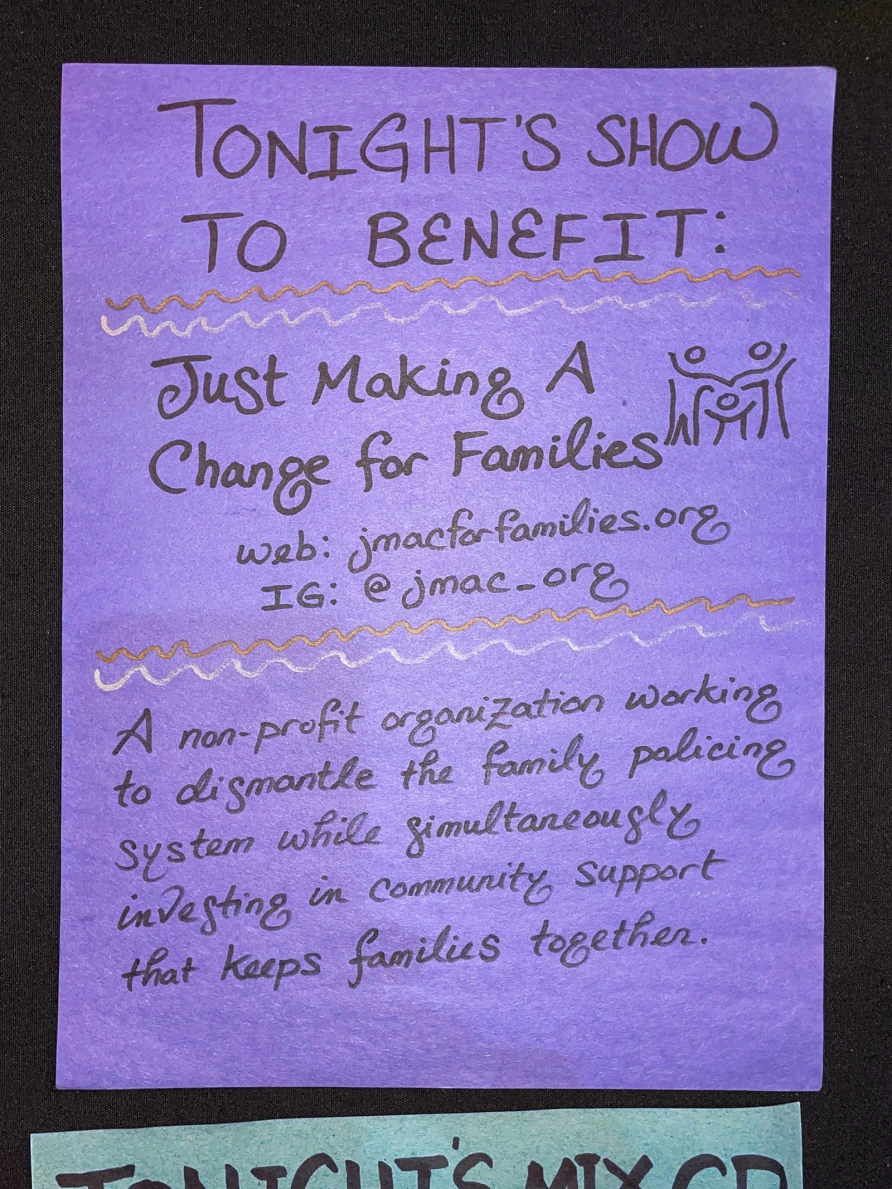 TONIGHT'S SHOW
TO BENEFIT:
Just Making A
Change for Families
web: jmacforfamilies.org
IG: @jmac_org
A non-profit organization working
to dismantle the family policing
system while simultaneously
investing in community support
that keeps families together.
TONIGHT'S MIX CD